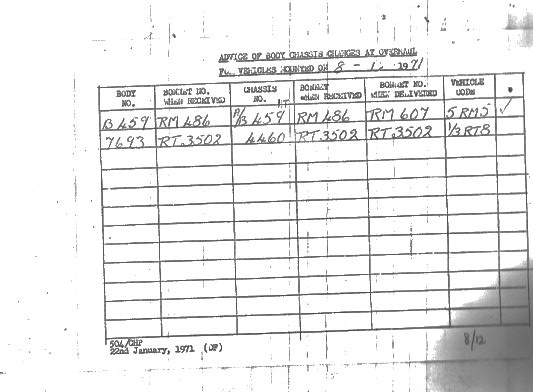 ADVICE OF BODY CHASSIS CHANGES AT OVERHAUL
For VEHICLES MOUNTED ON 8 - 1. 1971
BODY NO. BONNET NO. WHEN RECEIVED CHASSIS NO. BONNET WHEN RECEIVED BONNET NO. WHEN DELIVERED VEHICLE CODE
B 459 RM 486 B 459 RM 486 RM 607 5 RM5 ✓
7693 RT.3502 4460 RT.3502 RT.3502 1/3 RT8
504/CHP
22nd January, 1971 (OF)
8/12